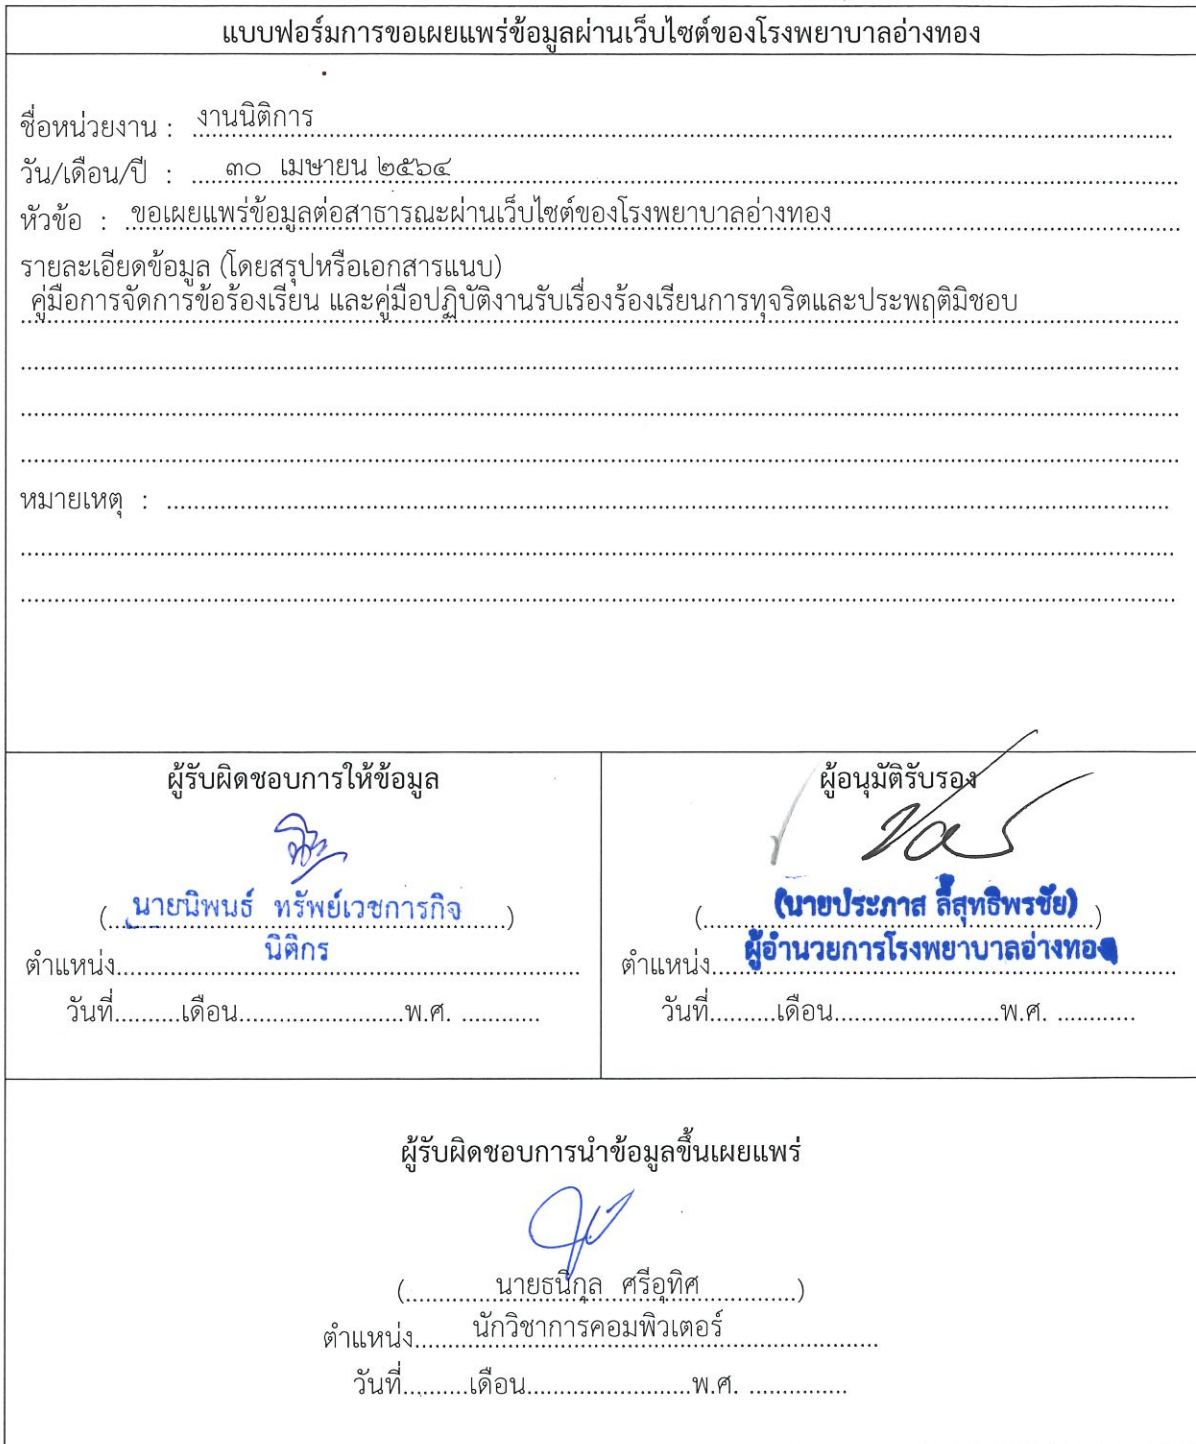 แบบฟอร์มการขอเผยแพร่ข้อมูลผ่านเว็บไซต์ของโรงพยาบาลอ่างทอง
ชื่อหน่วยงาน : งานนิติการ
วัน/เดือน/ปี : ๓๐ เมษายน ๒๕๖๔
หัวข้อ : ขอเผยแพร่ข้อมูลต่อสาธารณะผ่านเว็บไซต์ของโรงพยาบาลอ่างทอง
รายละเอียดข้อมูล (โดยสรุปหรือเอกสารแนบ)
คู่มือการจัดการข้อร้องเรียน และคู่มือปฏิบัติงานรับเรื่องร้องเรียนการทุจริตและประพฤติมิชอบ
หมายเหตุ :
ผู้รับผิดชอบการให้ข้อมูล
(นายนิพนธ์ ทรัพย์เวชการกิจ)
ตำแหน่ง นิติกร
วันที่..........เดือน.........................พ.ศ. ............
ผู้อนุมัติรับรอง
(นายประภาส ลี้สุทธิพรชัย)
ตำแหน่ง ผู้อำนวยการโรงพยาบาลอ่างทอง
วันที่..........เดือน.........................พ.ศ. ............
ผู้รับผิดชอบการนำข้อมูลขึ้นเผยแพร่
(นายธนีกุล ศรีอุทิศ)
ตำแหน่ง นักวิชาการคอมพิวเตอร์
วันที่..........เดือน.........................พ.ศ. ...............